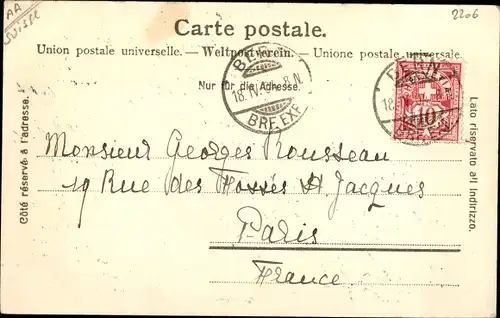 AA
Suisse
2206
Carte postale.
Union postale universelle. — Weltpostverein. — Unione postale universale.
Nur für die Adresse.
Côté réservé à l'adresse.
Lato riservato all' Indirizzo.
18. IV.
BRF. EXP.
10
Monsieur Georges Rousseau
19 Rue des Fossés St Jacques
Paris
France